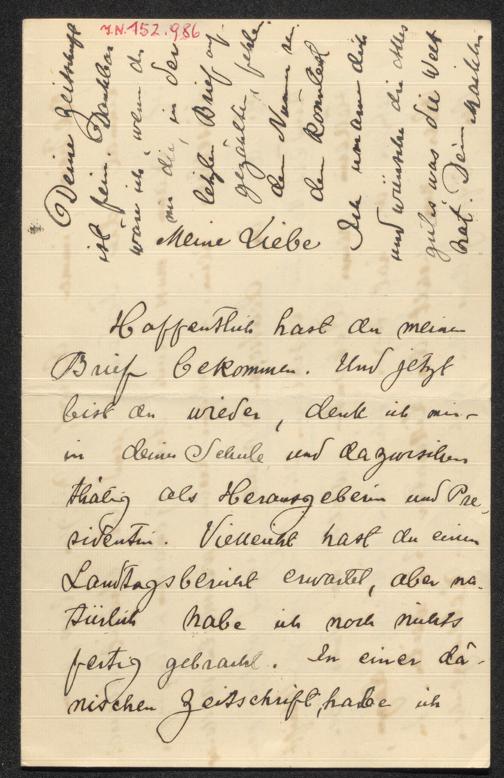 J.N. 152.986
Meine Liebe
Hoffentlich hast du meinen
Brief bekommen. Und jetzt
bist du wieder, denk ich mir
in deiner Schule und dazwischen
thätig als Herausgeberin und Pre-
sidentin. Vielleicht hast du einen
Landtagsbericht erwartet, aber na-
türlich habe ich noch nichts
fertig gebracht. In einer dä-
nischen Zeitschrift, habe ich
Deine Zeitung
ist fein. Dankbar
wäre ich wenn du
mir die, in der
letzten Brief auf-
gezählte, fehlen-
den Nummern
Ich umarm dich
und wünsche dir alles
gutes was die Welt
hat. Dein